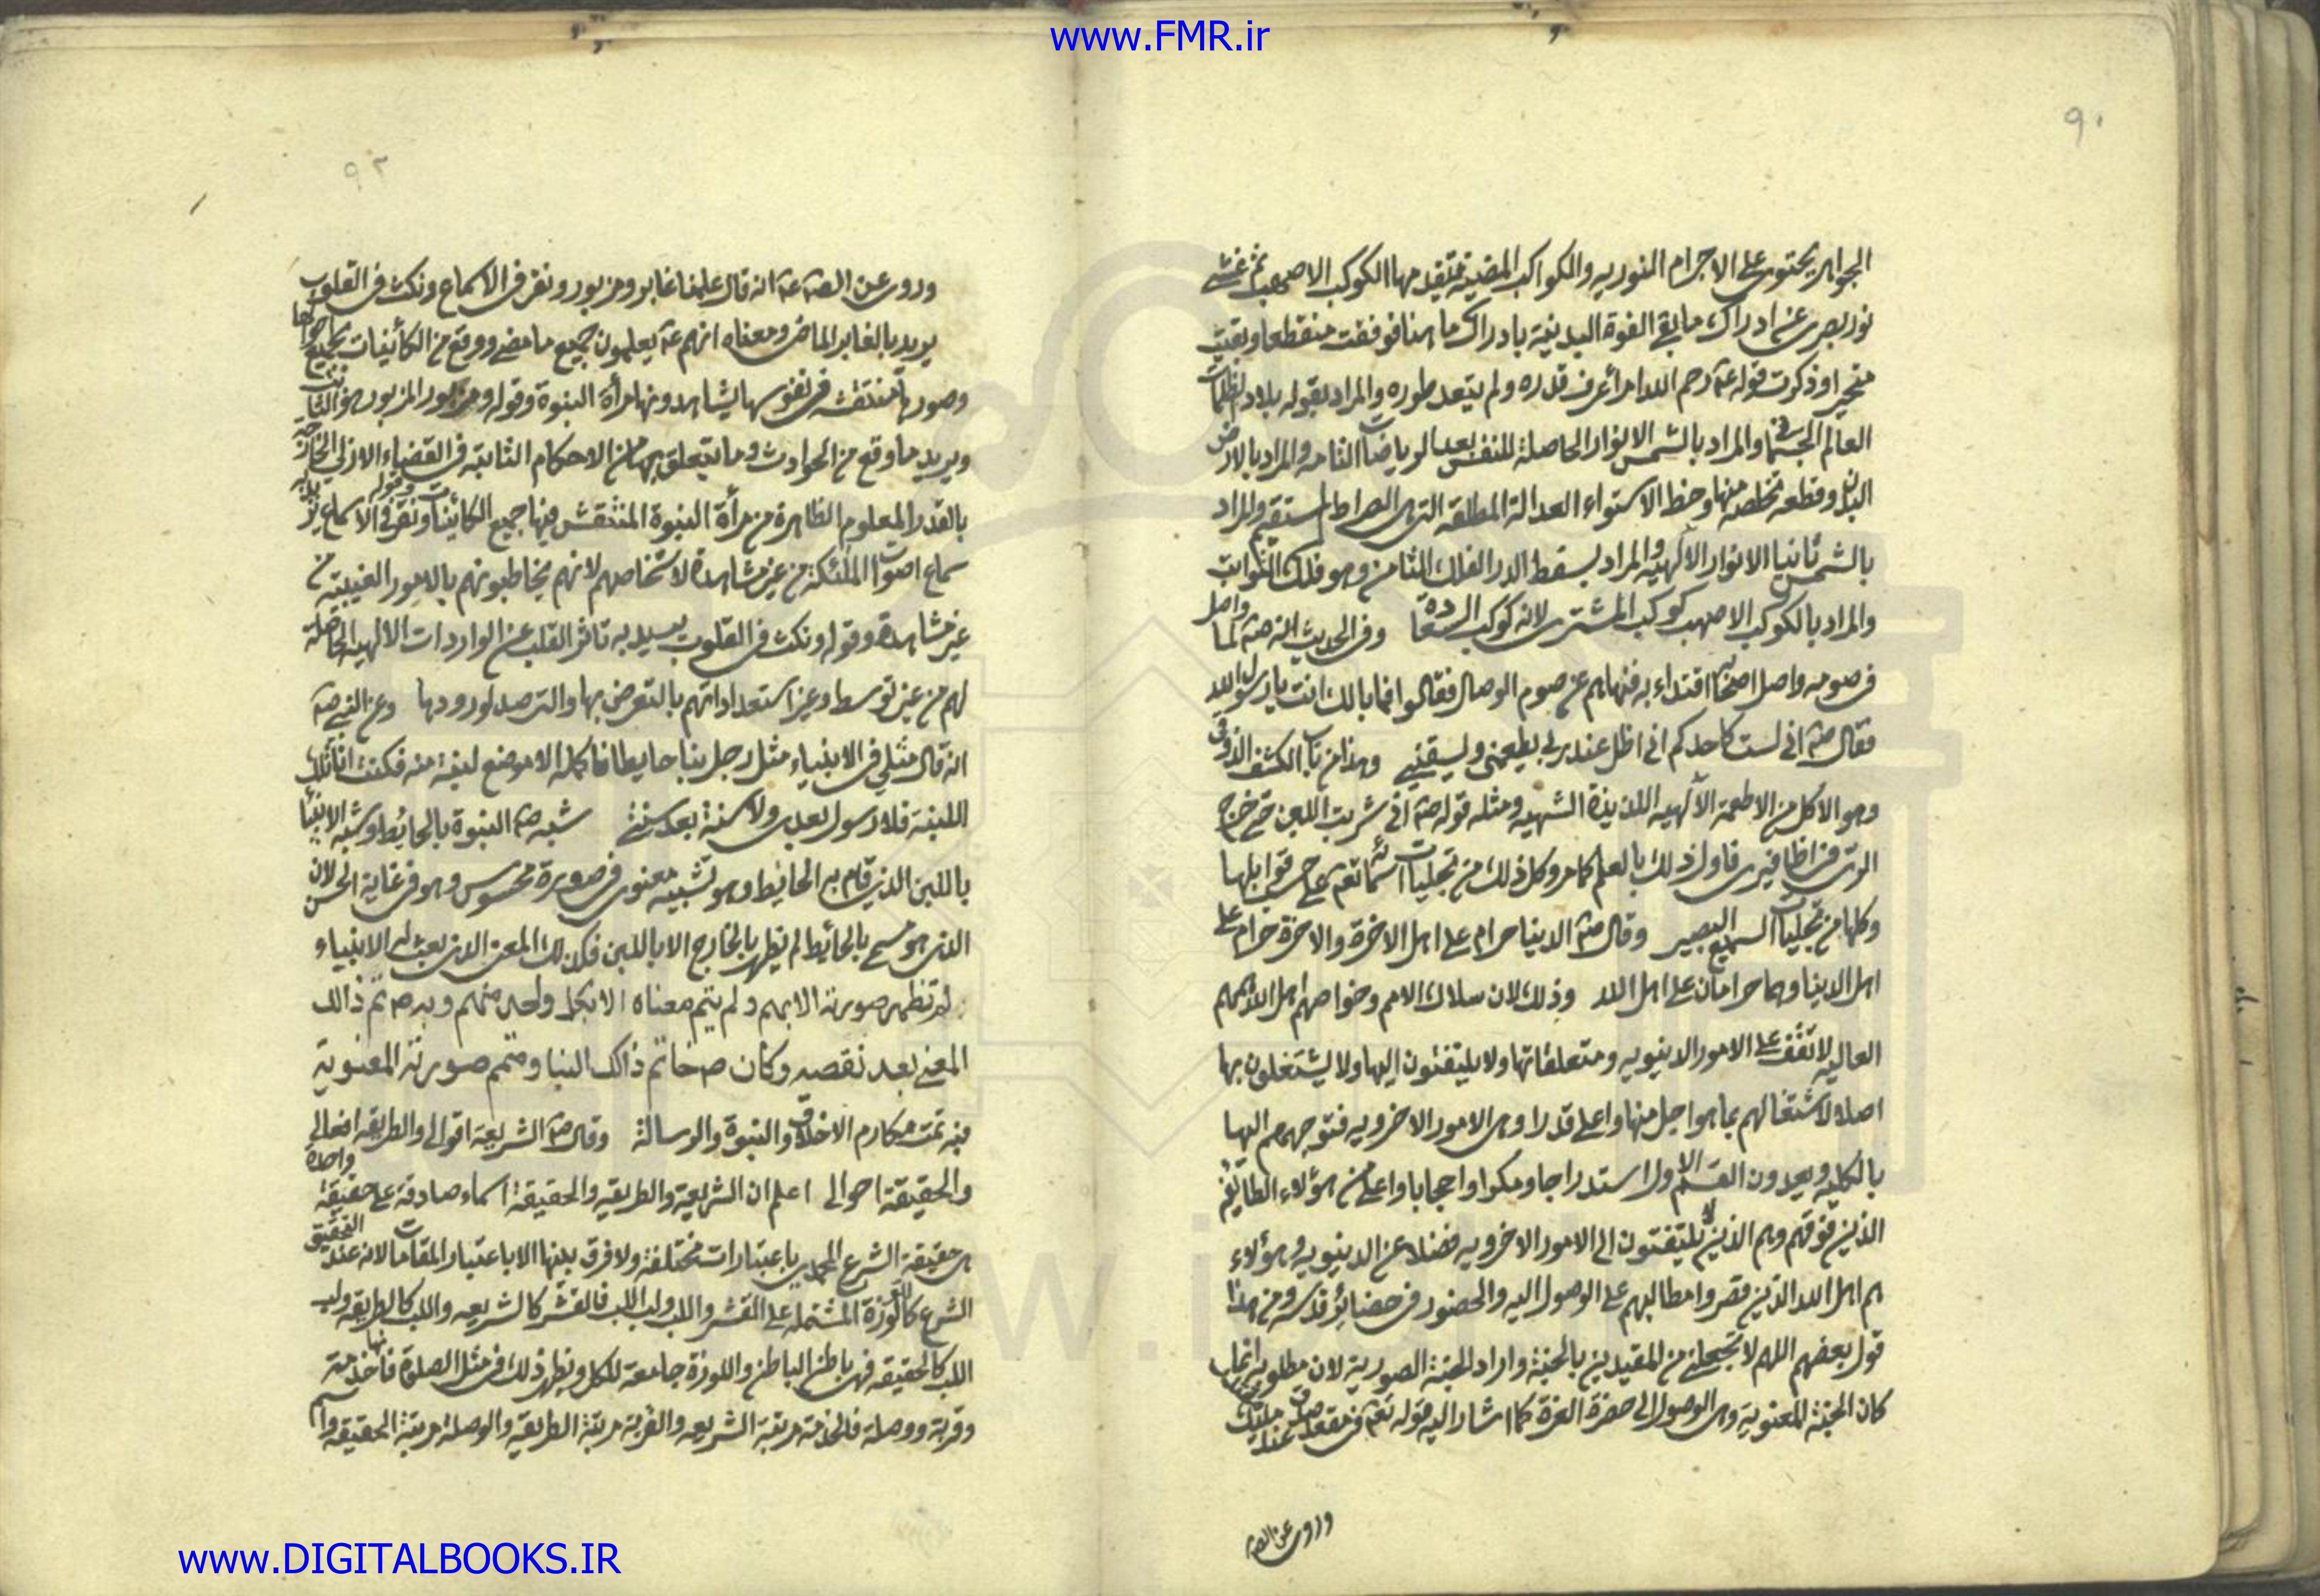 www.FMR.ir
٩٠
الجواهر يحتوي على الاجرام النوريه والكواكب المضيئة فتقدمها الكوكب الاصهب ثم غشي
نور بصرى عن ادراك ما بقي القوة البدنية بادراك ما هنا فوقفت منقطعا وبقيت
متحيرا وذكرت قوله عم رحم الله امرأ عرف قدره ولم يتعد طوره والمراد بقوله بلاد الظلمات
العالم الجسماني والمراد بالشمس الانوار الحاصلة للنفس بعد الرياضات التامه والمراد بالارض
البدن وقطعه تخلصه منها وخط الاستواء العدالة المطلقه التي هي الصراط المستقيم والمراد
بالشمس ثانيا الانوار الالهيه والمراد بسقط الدر الفلك الثامن وهو فلك الثوابت
والمراد بالكوكب الاصهب كوكب المشترى لانه كوكب السعادة وفي الحديث انه صم لما واصل
في صومه واصل اصحابه اقتداء به فنهاهم عن صوم الوصال فقالوا فما بالك انت يا رسول الله
فقال صم اني لست كاحدكم اني اظل عند ربي يطعمني ويسقيني وهذا من باب الكشف الذوقي
وهو الاكل من الاطعمة الالهيه اللذيذة الشهيه ومثله قوله صم اني شربت اللبن حتى خرج
الرى من اظافيرى فاول ذلك بالعلم كما مر وكل ذلك من تجليات اسمائه تعم على حسب قوابلها
وكلها من تجليات السميع البصير وقال صم الدنيا حرام على اهل الاخرة والاخرة حرام على
اهل الدنيا وهما حرامان على اهل الله وذلك لان سلاك الامم وخواصهم اهل الله هممهم
العاليه لا تقف على الامور الدنيويه ومتعلقاتها ولا يلتفتون اليها ولا يشتغلون بها
اصلا لاشتغالهم بما هو اجل منها واعلى قدرا وهي الامور الاخرويه فتوجههم اليها
بالكليه ويعدون القسم الاول استدراجا ومكرا وحجابا واعلى من هؤلاء الطايفه
الذين فوقهم وهم الذين لا يلتفتون الى الامور الاخرويه فضلا عن الدنيويه وهؤلاء
هم اهل الله الذين قصروا مطالبهم على الوصول اليه والحضور في حضاير قدس ومن هذا
قول بعضهم اللهم لا تجعلني من المقيدين بالجنة واراد الجنة الصورية لان مطلوبه انما
كان الجنة المعنوية وهي الوصول الى حضرة العزة كما اشار اليه قوله تعم في مقعد صدق عند مليك
وروى عن الصم
٩٢
وروى عن الصم عم انه قال علمنا غابر ومزبور ونقر في الاسماع ونكت في القلوب
يريد بالغابر الماضي ومعناه انهم عم يعلمون جميع ما مضى ووقع من الكائنات بجميع
وصورها منتقشه في نفوسها يشاهدونها مرأة النبوة وقوله ومزبور المزبور هو الثابت
ويريد ما وقع من الحوادث وما يتعلق بها من الاحكام الثابتة في القضاء الازلي الخارجه
بالقدر المعلوم الظاهرة من مرأة النبوة المنتقش فيها جميع الكاينات وقوله ونقر في الاسماع يريد به
سماع اصوات الملئكة من غير مشاهدة لاشخاصهم لانهم يخاطبونهم بالامور الغيبيه من
غير مشاهدة وقوله ونكت في القلوب يريد به تاثر القلب عن الواردات الالهيه الحاصلة
لهم من غير توسط وغير استعداداتهم بالتعرض بها والترصد لورودها وعن النبي صم
انه قال مثلي في الانبياء مثل رجل بنا حايطا فاكمله الا موضع لبنة منه فكنت انا تلك
اللبنة فلا رسول بعدى ولا سنة بعد سنتي شبه صم النبوة بالحائط وشبه الانبيا
باللبن الذين قام بهم الحائط وهو تشبيه معنوى في صورة محسوس وهو في غاية الحسن لان
الذى هو مسمى بالحائط لم يظهر بالخارج الا باللبن فكذلك المعنى الذى بعث له الانبياء
لم تظهر صورته الا بهم ولم يتم معناه الا بكل واحد منهم وبه صم تم ذالك
المعنى بعد نقصه وكان صم خاتم ذاك البنا ومتمم صورته المعنوية
فبه تمت مكارم الاخلاق والنبوة والرسالة وقال صم الشريعة اقوالى والطريقه افعالي
والحقيقة احوالى اعلم ان الشريعة والطريقه والحقيقة اسماء صادقة على حقيقة واحدة
هى حقيقة الشرع المحمدى باعتبارات مختلفة ولا فرق بينها الا باعتبار المقامات لانه عند التحقيق
الشرع كاللوزة المشتمله على القشر واللب ولب اللب فالقشر كالشريعه واللب كالطريقه ولب
اللب كالحقيقه فهى باطن الباطن واللوزة جامعة للكل ويظهر ذلك في مثل الصلوة فانها خدمة
وقربة ووصلة فالخدمة مرتبة الشريعه والقربة مرتبة الطريقه والوصلة مرتبة الحقيقه واسم
www.DIGITALBOOKS.IR